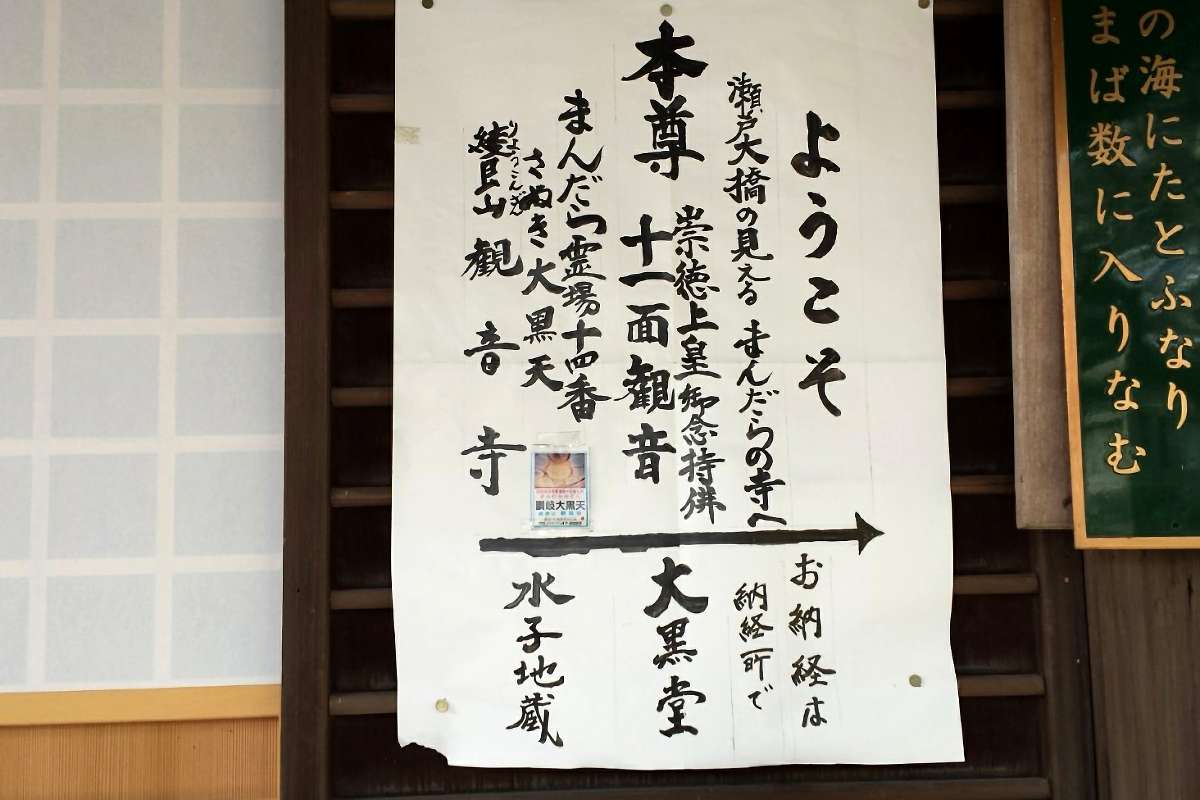 の海にたとふなり
まば数に入りなむ
ようこそ
瀬戸大橋の見える まんだらの寺へ
崇徳上皇御念持佛
本尊 十一面観音
まんだら霊場十四番
さぬき大黒天
りょうこんざん
綾艮山 観音寺
讃岐大黒天
お納経は
納経所で
大黒堂
水子地蔵